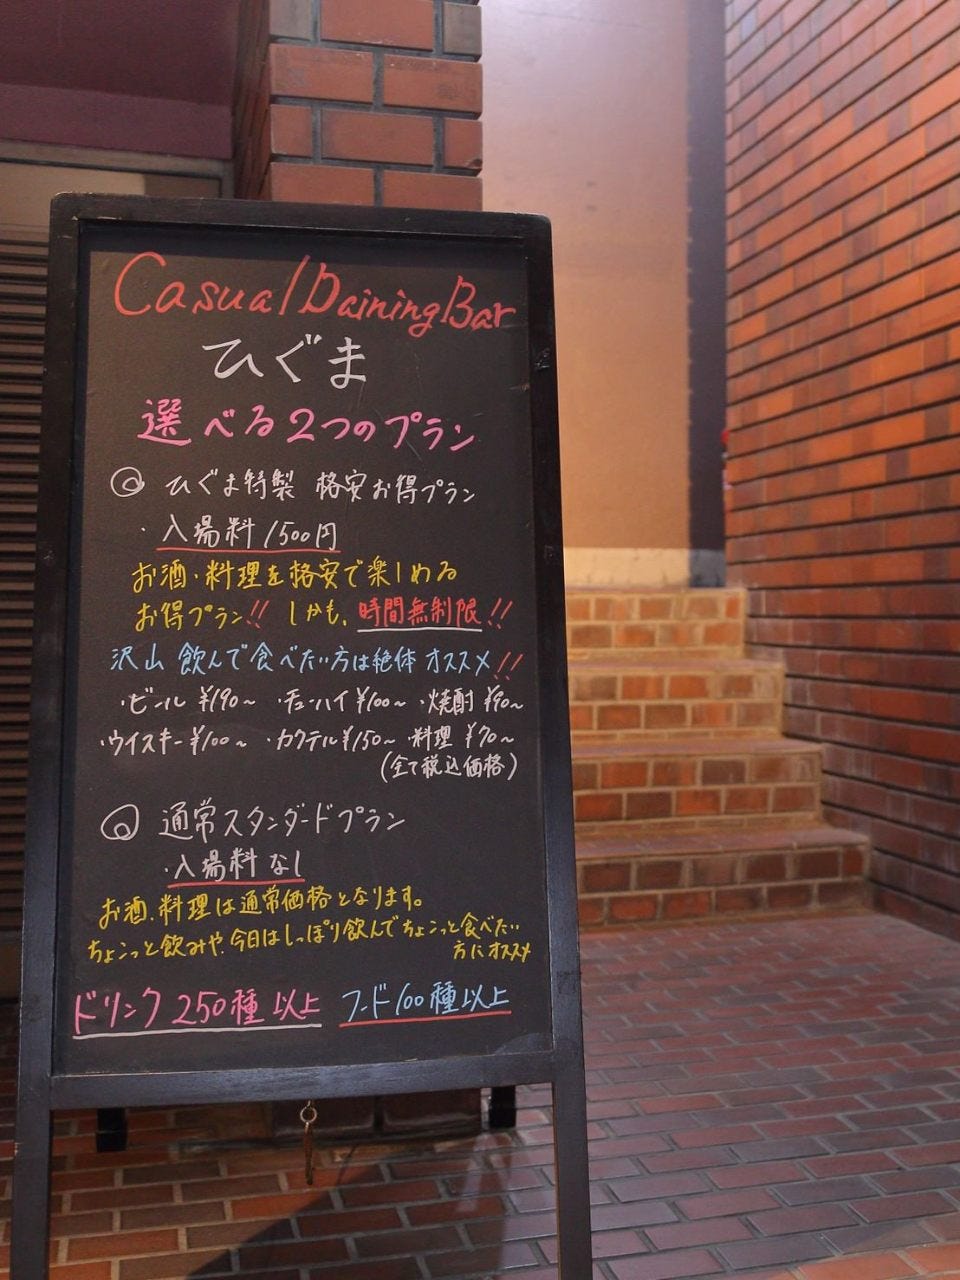 Casual Daining Bar
ひぐま
選べる2つのプラン
◎ ひぐま特製 格安お得プラン
・入場料 1500円
お酒・料理を格安で楽しめる
お得プラン!! しかも、時間無制限!!
沢山 飲んで食べたい方は絶体オススメ!!
・ビール ¥190~ ・チューハイ ¥100~ ・焼酎 ¥90~
・ウイスキー ¥100~ ・カクテル ¥150~ ・料理 ¥70~
(全て税込価格)
◎ 通常スタンダードプラン
・入場料 なし
お酒、料理は通常価格となります。
ちょこっと飲みや、今日はしっぽり飲んでちょこっと食べたい
方にオススメ
ドリンク 250種 以上 フード 100種 以上